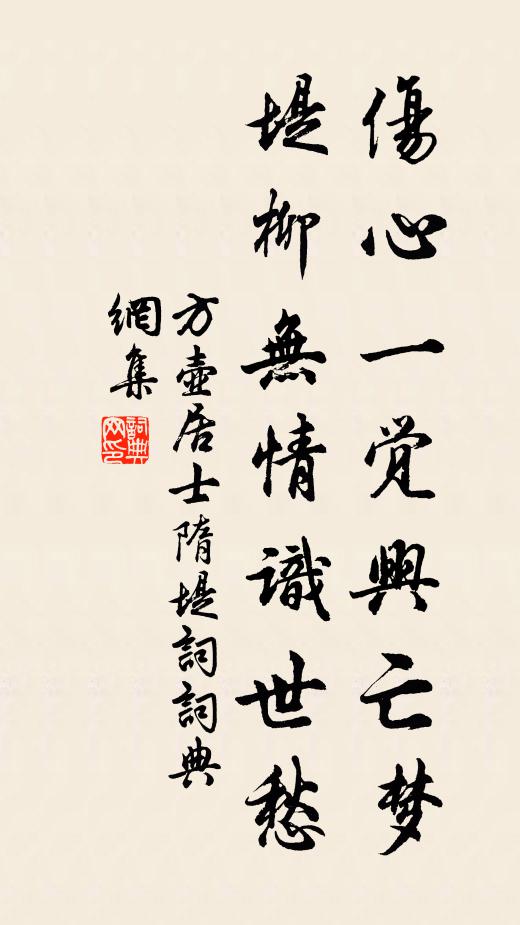 傷心一覺興亡梦
堤柳無情識世愁
方壺居士隋堤詞詞典
網集
詞典
网印